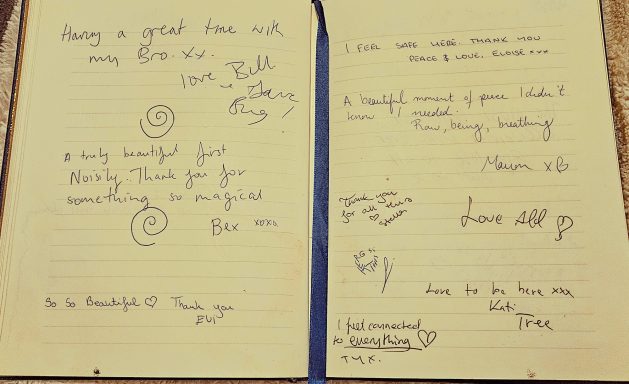 Having a great time with
my Bro. xx.
love Bill
A truly beautiful first
Noisily. Thank you for
something so magical
Bex xoxo
So So Beautiful ♡ Thank you
Evi
I FEEL SAFE HERE. THANK YOU
PEACE & LOVE, ELOISE xxx
A beautiful moment of peace I didn't
know I needed.
Raw, being, breathing
xB
Thank you
for all this
♡ Stella
Love Ald
Love to be here xxx
Kati
Tree
I feel connected
to everything ♡
TYX.